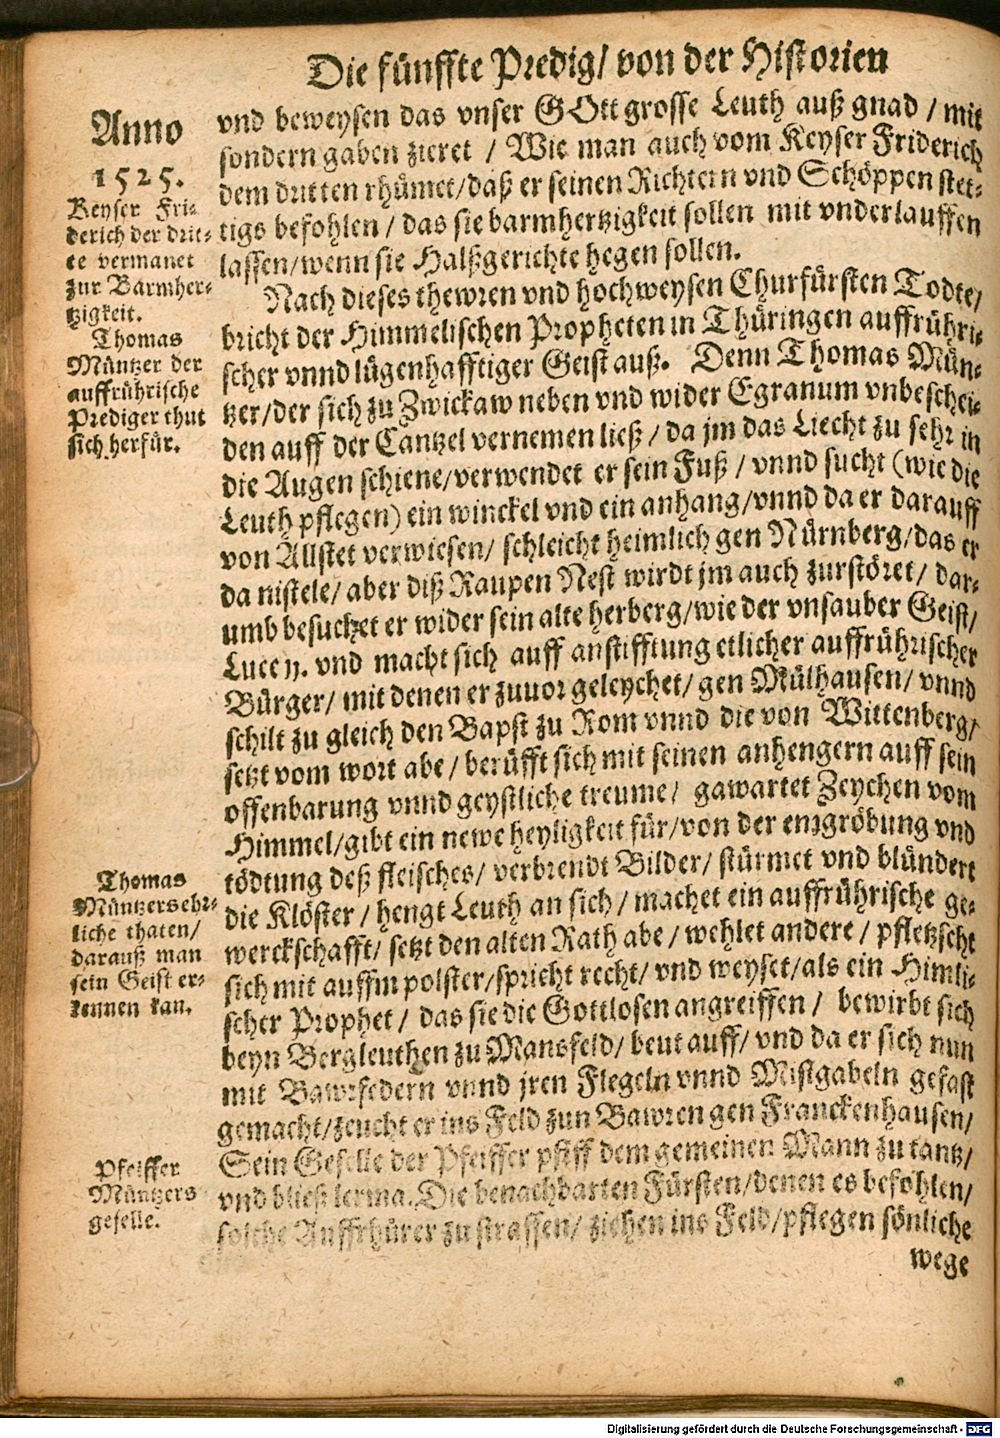 Die fünffte Predig/ von der Historien
Anno
1525.
Keyser Fri-
derich der drit-
te vermanet
zur Barmher-
tzigkeit.
Thomas
Müntzer der
auffrührische
Prediger thut
sich herfür.
Thomas
Müntzers ehr-
liche thaten/
darauß man
sein Geist er-
kennen kan.
Pfeiffer
Müntzers
geselle.
vnd beweysen das vnser GOtt grosse Leuth auß gnad / mit
sondern gaben zieret / Wie man auch vom Keyser Friderich
dem dritten rhümet/daß er seinen Richtern vnd Schöppen stet-
tigs befohlen / das sie barmhertzigkeit sollen mit vnderlauffen
lassen/wenn sie Halßgerichte hegen sollen.
Nach dieses thewren vnd hochweysen Churfürsten Todte/
bricht der Himmelischen Propheten in Thüringen auffrühri-
scher vnnd lügenhafftiger Geist auß. Denn Thomas Mün-
tzer/der sich zu Zwickaw neben vnd wider Egranum vnbeschei-
den auff der Cantzel vernemen ließ / da jm das Liecht zu sehr in
die Augen schiene/verwendet er sein Fuß / vnnd sucht (wie die
Leuth pflegen) ein winckel vnd ein anhang/vnnd da er darauff
von Allstet verwiesen/ schleicht heimlich gen Nürnberg/das er
da nistele/ aber diß Raupen Nest wirdt jm auch zurstöret/ dar-
umb besuchet er wider sein alte herberg/wie der vnsauber Geist/
Luce 11. vnd macht sich auff anstifftung etlicher auffrührischer
Bürger/ mit denen er zuuor geleychet/ gen Mülhausen/ vnnd
schilt zu gleich den Bapst zu Rom vnnd die von Wittenberg/
setzt vom wort abe / berüfft sich mit seinen anhengern auff sein
offenbarung vnnd geystliche treume/ gawartet Zeychen vom
Himmel/gibt ein newe heyligkeit für/von der entgröbung vnd
tödtung deß fleisches/ verbrendt Bilder/ stürmet vnd blündert
die Klöster / hengt Leuth an sich / machet ein auffrührische ge-
werckschafft/ setzt den alten Rath abe / wehlet andere / pfletzscht
sich mit auffm polster/spricht recht/ vnd weyset/als ein Himli-
scher Prophet / das sie die Gottlosen angreiffen / bewirbt sich
beyn Bergleuthen zu Mansfeld/ beut auff/ vnd da er sich nun
mit Bawrfedern vnnd jren Flegeln vnnd Mistgabeln gefast
gemacht/zeucht er ins Feld zun Bawren gen Franckenhausen/
Sein Geselle der Pfeiffer pfiff dem gemeinen Mann zu tantz/
vnd bließ lerma. Die benachbarten Fürsten/denen es befohlen/
solche Auffrhürer zu straffen/ ziehen ins Feld/pflegen sönliche
wege
Digitalisierung gefördert durch die Deutsche Forschungsgemeinschaft - DFG